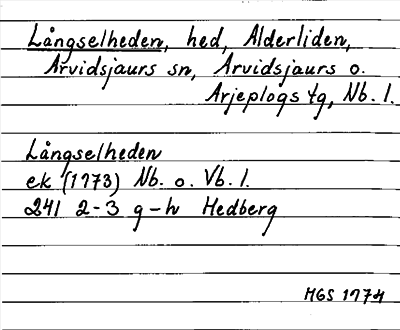 Långselheden, hed, Alderliden,
Arvidsjaurs sn, Arvidsjaurs o.
Arjeplogs tg, Nb. l.
Långselheden
ek (1973) Nb. o. Vb. l.
24I 2-3 g-h Hedberg
MGS 1974